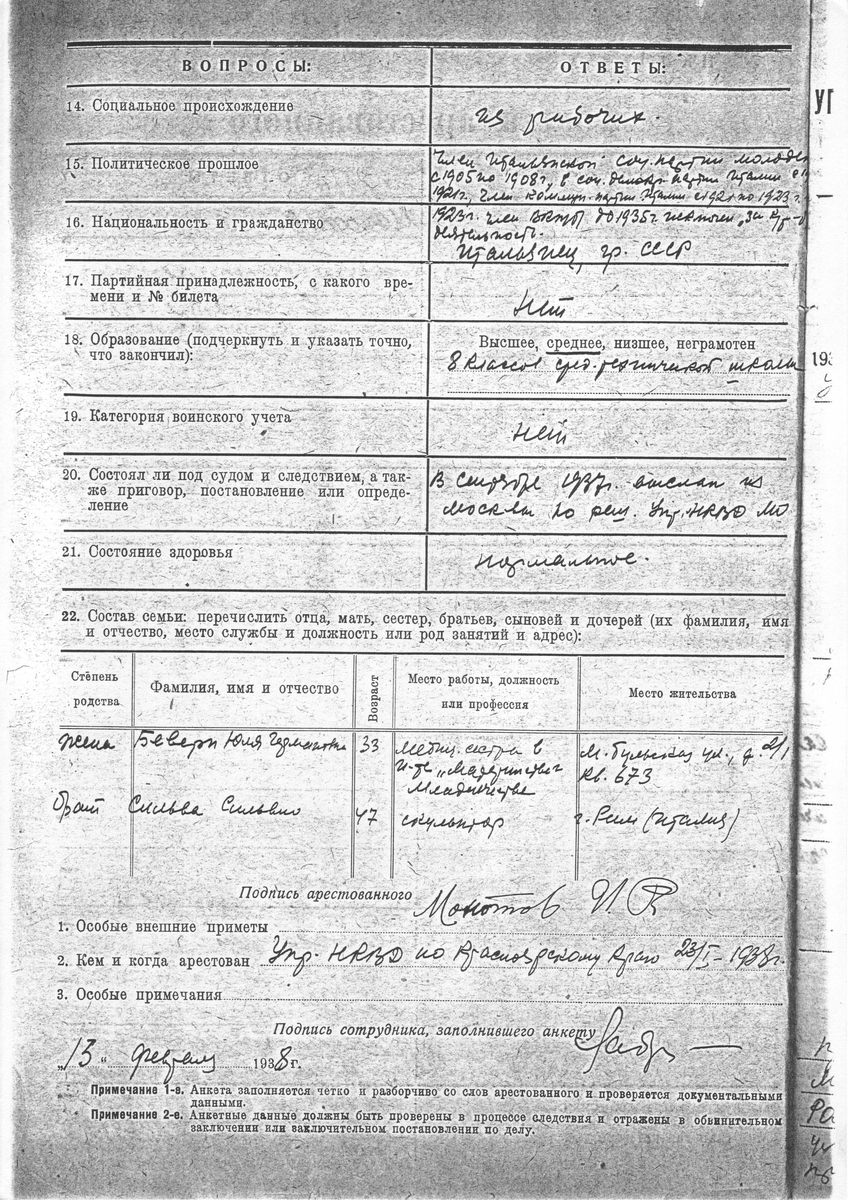 ВОПРОСЫ: ОТВЕТЫ:
14. Социальное происхождение
из рабочих.
15. Политическое прошлое
Член Итальянской соц. партии молодеж
с 1905 по 1908 г, в соц. демокр. партии Италии с
1921 г, член коммун. партии Италии с 1921 по 1923 г.
16. Национальность и гражданство
1923 г. член ВКП(б) до 1935 г. исключен „за к/р
деятельность.
Итальянец, гр. СССР
17. Партийная принадлежность, с какого вре-
мени и № билета
нет
18. Образование (подчеркнуть и указать точно,
что закончил):
Высшее, среднее, низшее, неграмотен
8 классов сред. технической школы
19. Категория воинского учета
нет
20. Состоял ли под судом и следствием, а так-
же приговор, постановление или опреде-
ление
В сентябре 1937 г. выслан из
Москвы по реш. Упр. НКВД МО
21. Состояние здоровья
нормальное.
22. Состав семьи: перечислить отца, мать, сестер, братьев, сыновей и дочерей (их фамилия, имя
и отчество, место службы и должность или род занятий и адрес):
Степень
родства
Фамилия, имя и отчество
Возраст
Место работы, должность
или профессия
Место жительства
жена Юлия 33 медиц. сестра в
М. Бульская ул., д. 2/1
кв. 673
Младенчества
брат Сильва Сильвио 47 скульптор г. Рим (Италия)
Подпись арестованного
И. Р.
1. Особые внешние приметы
2. Кем и когда арестован Упр. НКВД по Красноярскому Краю 23/I - 1938 г.
3. Особые примечания
Подпись сотрудника, заполнившего анкету
„13" февраля 1938 г.
Примечание 1-е. Анкета заполняется четко и разборчиво со слов арестованного и проверяется документальными
данными.
Примечание 2-е. Анкетные данные должны быть проверены в процессе следствия и отражены в обвинительном
заключении или заключительном постановлении по делу.